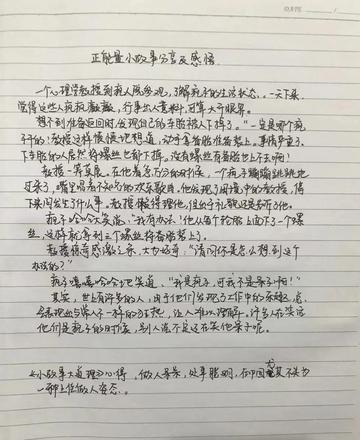 正能量小故事分享及感悟
一个心理学教授到疯人院参观，了解疯子的生活状态。一天下来，
觉得这些人疯疯癫癫，行事出人意料，可算大开眼界。
想不到准备返回时，发现自己的车胎被人下掉了。“一定是哪个疯
子干的！”教授这样愤愤地想道，动手拿备胎准备装上。事情严重了，
下车胎的人居然将螺丝也都下掉。没有螺丝有备胎也上不去啊！
教授一筹莫展。在他着急万分的时候，一个疯子蹦蹦跳跳地
过来了，嘴里唱着不知名的欢乐歌曲。他发现了困境中的教授，停
下来问发生了什么事。教授懒得理他，但出于礼貌还是告诉了他。
疯子哈哈大笑说：“我有办法！他从每个轮胎上面下了一个螺
丝，这样就拿到三个螺丝将备胎装上了。
教授惊奇感激之余，大为好奇：“请问你是怎么想到这个
办法的？”
疯子嘻嘻哈哈地笑道：“我是疯子，可我不是呆子啊！”
其实，世上有许多的人，由于他们发现了工作中的乐趣，总
会表现出与常人不一样的狂热，让人难以理解。许多人在笑话
他们是疯子的时候，别人说不定还在笑他呆子呢。
《小故事大道理》心得，做人呆呆，处事聪明，在中国尤其不失为
一种上佳做人姿态。